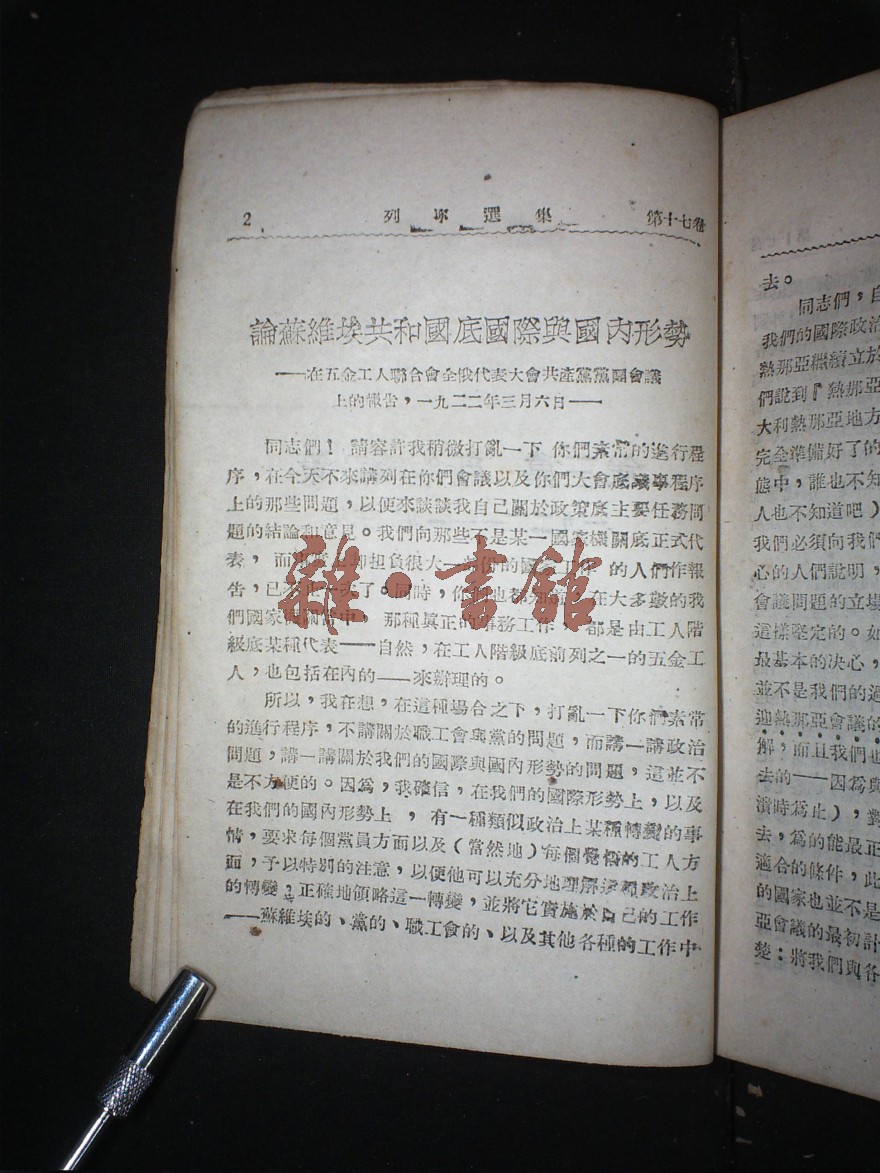 2 列寧選集 第十七卷
論蘇維埃共和國底國際與國內形勢
——在五金工人聯合會全俄代表大會共產黨黨團會議
上的報告,一九二二年三月六日——
同志們!請容許我稍微打亂一下 你們素常的進行程
序,在今天不來講列在你們會議以及你們大會底議事程序
上的那些問題,以便來談談我自己關於政策底主要任務問
題的結論和意見。我們向那些不是某一國家機關底正式代
表,而 担負很大一 的國 的人們作報
告,已 了。同時,你們也都知道,在大多數的我
們國家機關當中,那種眞正的事務工作,都是由工人階
級底某種代表——自然,在工人階級底前列之一的五金工
人,也包括在內的——來辦理的。
所以,我在想,在這種場合之下,打亂一下你們素常
的進行程序,不講關於職工會與黨的問題,而講一講政治
問題,講一講關於我們的國際與國內形勢的問題,這並不
是不方便的。因爲,我確信,在我們的國際形勢上,以及
在我們的國內形勢上,有一種類似政治上某種轉變的事
情,要求每個黨員方面以及(當然地)每個覺悟的工人方
面,予以特別的注意,以便他可以充分地理解這種政治上
的轉變,正確地領略這一轉變,並將它實施於自己的工作
——蘇維埃的、黨的、職工會的、以及其他各種的工作中
去。
同志們,自
我們的國際政治
熱那亞繼續立於
們說到『熱那亞
大利熱那亞地方
完全準備好了的
態中,誰也不知
人也不知道吧)
我們必須向我們
心的人們說明,
會議問題的立場
這樣堅定的。如
最基本的决心,
並不是我們的過
迎熱那亞會議的
解,而且我們也
去的——因爲與
演時爲止),對
去,爲的能最正
適合的條件,此
的國家也並不是
亞會議的最初計
楚:將我們與各
雜·書館